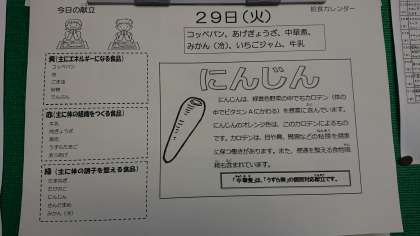 今日の献立
29日(火)
給食カレンダー
コッペパン、あげぎょうざ、中華煮、
みかん(冷)、いちごジャム、牛乳
黄(主にエネルギーになる食品)
コッペパン
油
ごま油
砂糖
でんぷん
赤(主に体の組織をつくる食品)
牛乳
肉ぎょうざ
豚肉
うずらたまご
緑(主に体の調子を整える食品)
たまねぎ
たけのこ
にんじん
さんどまめ
みかん(冷)
にんじん
にんじんは、緑黄色野菜の中でもカロテン(体の
中でビタミンAにかわる)を豊富に含んでいます。
にんじんのオレンジ色は、このカロテンによるもの
です。カロテンは、目や鼻、胃腸などの粘膜を健康
に保つ働きがあります。また、便通を整える食物繊
維も含まれています。
「中華煮」は、「うずら卵」の個別対応献立です。